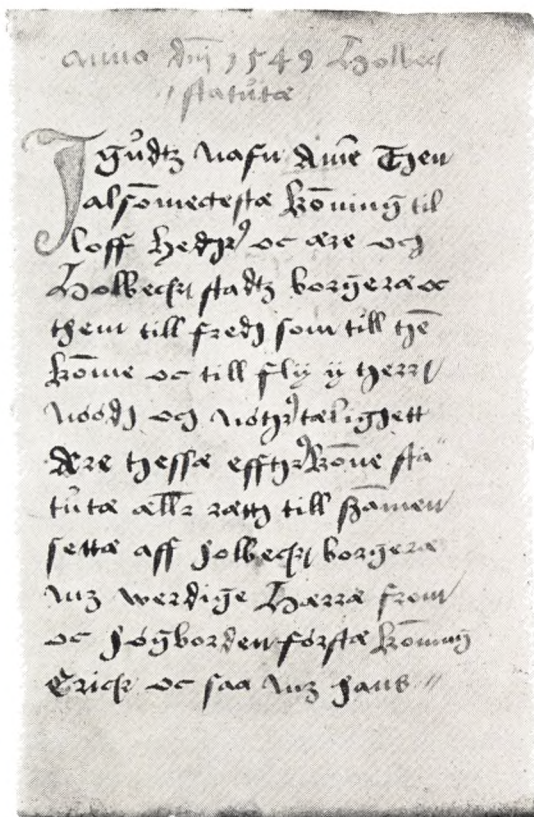 Anno dnī 1549 Holbeck
statuta
I gudtz nafn Amē Then
alsōmectestæ kōning til
loff hedhr oc ære och
Holbecks stadtz borgeræ oc
them till fredh som till thē
kōme oc till fly y therrs
noodh och nøthrtælighett
Ære thessæ effthrkōne sta"
tutæ ællr rætth till hāmen
settæ aff holbecks borgeræ
mz werdige Hærræ from
oc høgborden førstæ kōning
Erick oc saa mz hans //